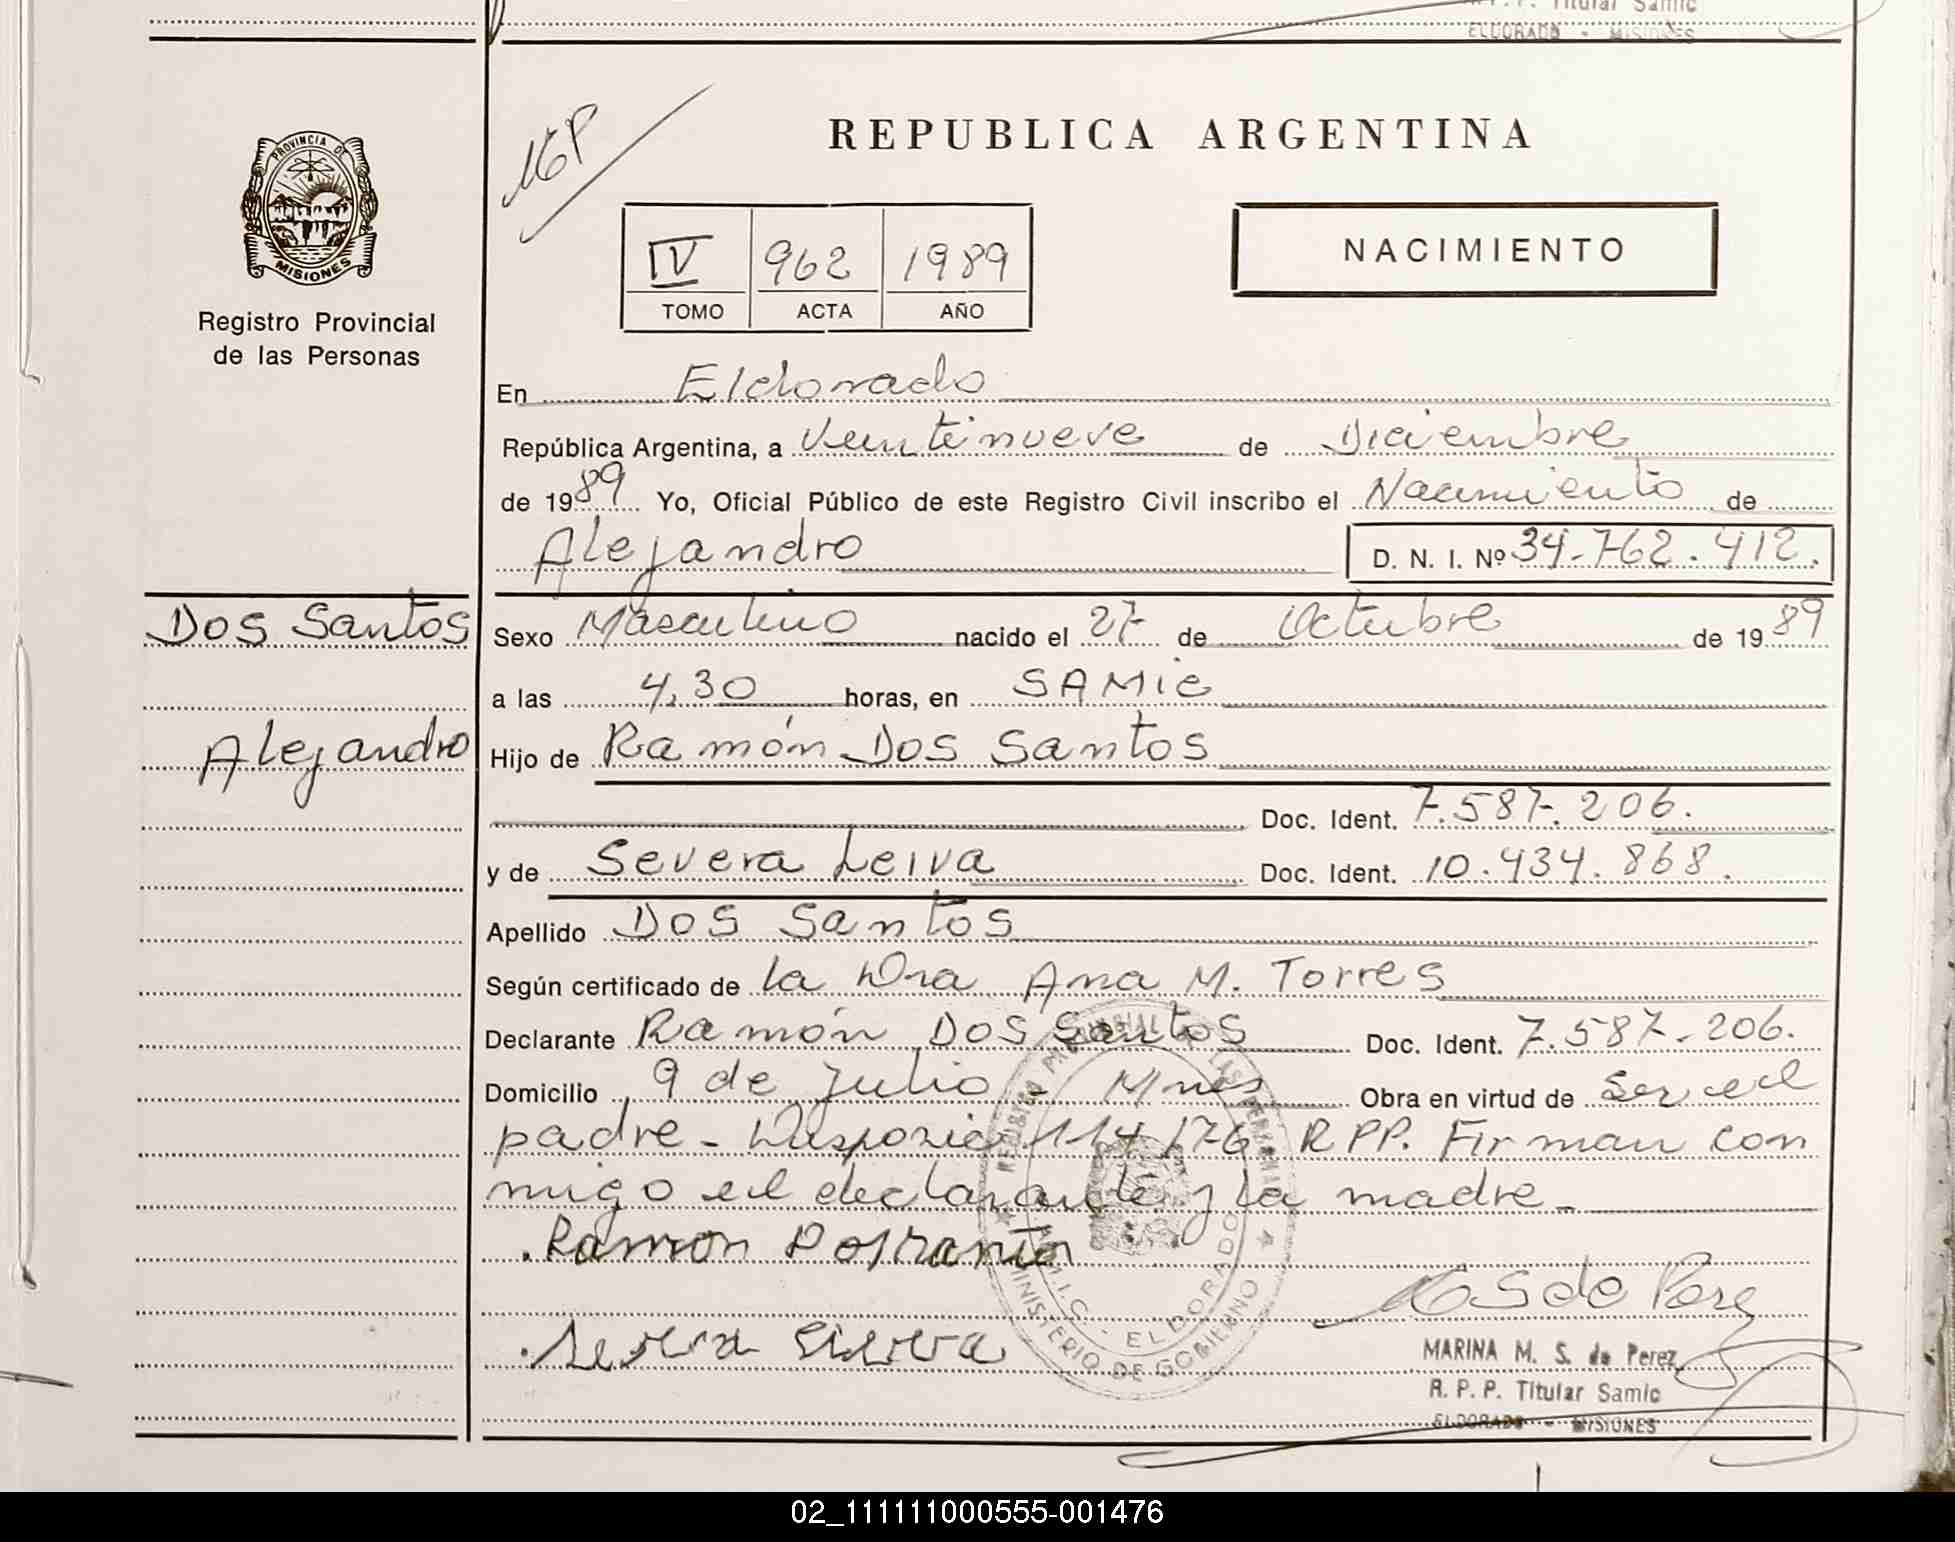 Titular Samic
ELDORADO - MISIONES
PROVINCIA DE
MISIONES
Registro Provincial
de las Personas
Dos Santos
Alejandro
REPUBLICA ARGENTINA
IV 962 1989
TOMO ACTA AÑO
NACIMIENTO
En Eldorado
República Argentina, a Veintinueve de Diciembre
de 1989 Yo, Oficial Público de este Registro Civil inscribo el Nacimiento de
Alejandro D. N. I. Nº 34.762.412.
Sexo Masculino nacido el 27 de Octubre de 1989
a las 4,30 horas, en SAMIC
Hijo de Ramón Dos Santos
Doc. Ident. 7.587.206.
y de Severa Leiva Doc. Ident. 10.434.868.
Apellido Dos Santos
Según certificado de la Dra Ana M. Torres
Declarante Ramón Dos Santos Doc. Ident. 7.587.206.
Domicilio 9 de Julio - Mnes Obra en virtud de ser el
padre - Disposic 114/76 RPP. Firman con
migo el declarante y la madre -
Ramon
S de Perez
MARINA M. S. de Perez
R. P. P. Titular Samic
ELDORADO - MISIONES
ELDORADO
MINISTERIO DE GOBIERNO
02_111111000555-001476